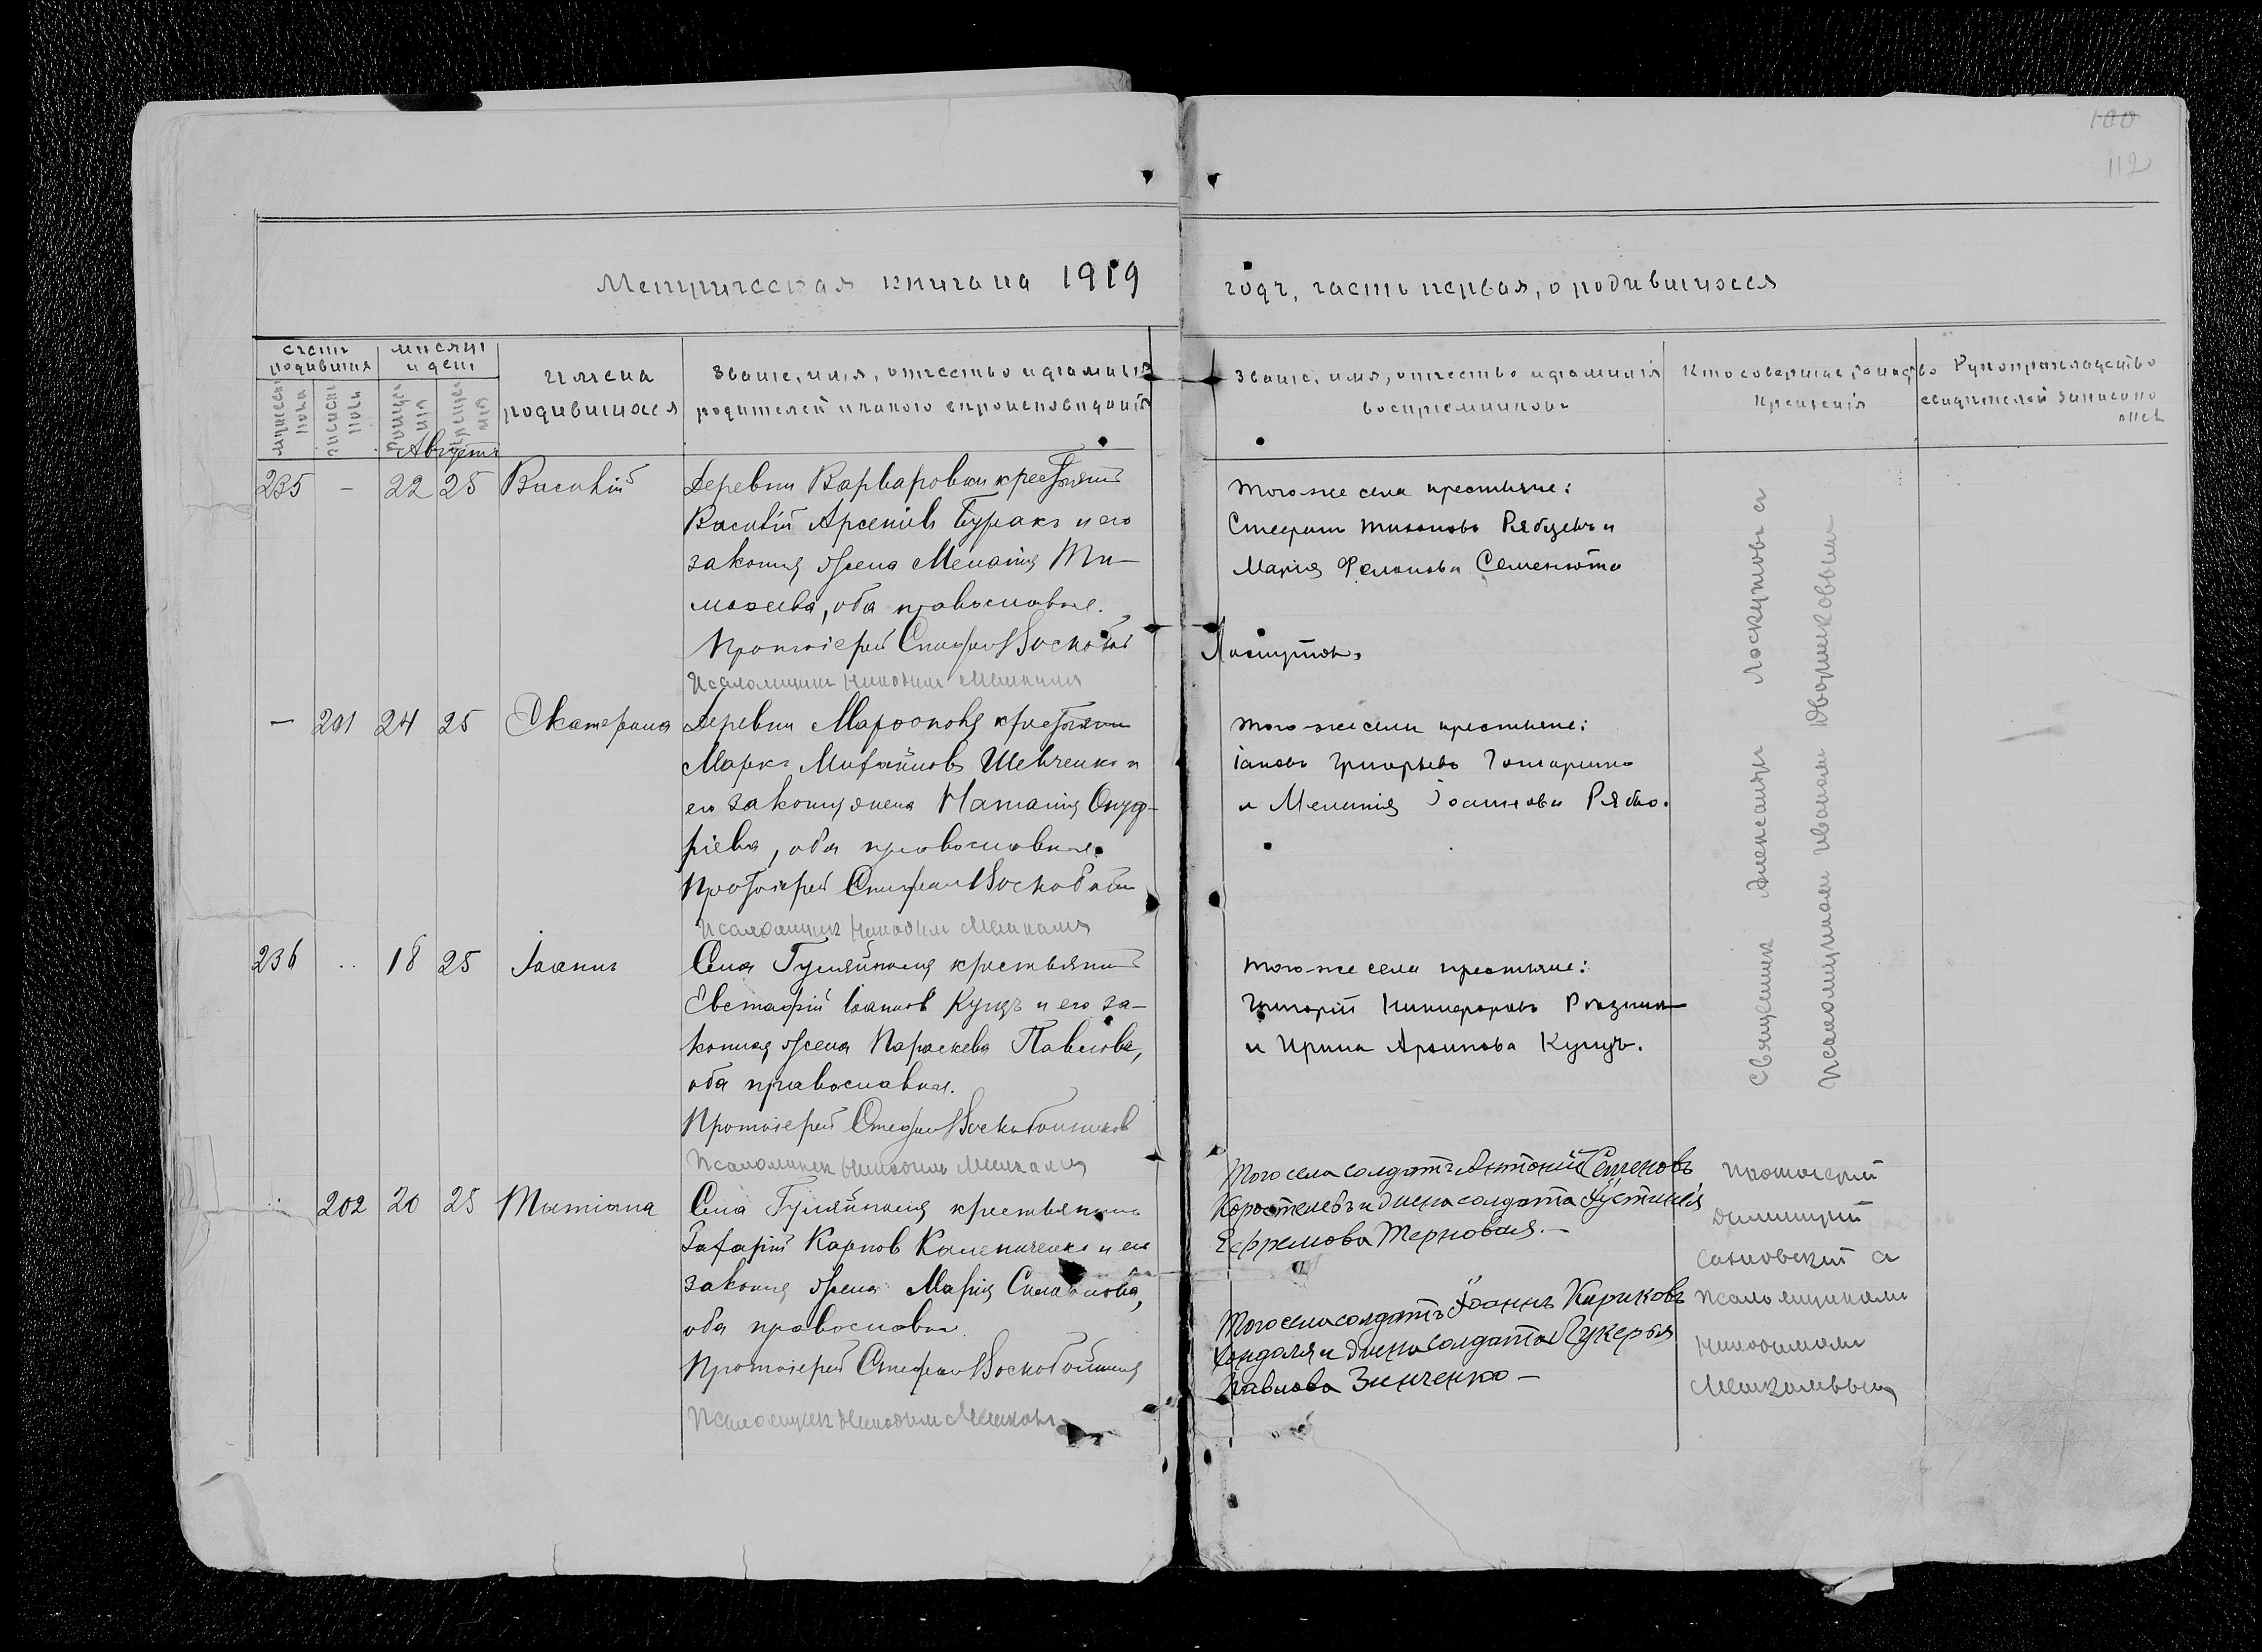 100
112
Метрическая книга на 1919
годъ, часть первая, о родившихся
счетъ родившихся
мужеска пола
женска пола
месяцъ и день
рождения
крещения
имена родившихся
Звание, имя, отчество и фамилия
родителей и какого вероисповедания
Звание, имя, отчество и фамилия
восприемниковъ
Кто совершал таинство
крещения
Рукоприкладство
свидетелей записи по
Августъ
235 - 22 25 Василій
Деревни Варваровки крестьянин
Василій Арсеніев Бурлакъ и его
законная жена Меланія Ти-
мофеева, оба православные.
Протоіерей Стефан Воскобойн
Псаломщик Никодим
Того-же села крестьяне:
Стефанъ Тихоновъ Рябцевъ и
Марія Филонова Семенюта
Лоскутовъ
Священник Александр Лоскутовъ с
Псаломщиком Иваном Дворниковым
- 201 24 25 Екатерина
Деревни Марфополя крестьянин
Маркъ Михайлов Шевченко и
его законная жена Наталія Онуф-
ріева, оба православные.
Протоіерей Стефан Воскобойн
Псаломщик Никодим
Того-же села крестьяне:
Іаковъ Григорьевъ Гончаренко
и Меланія Іоаннова Рябко.
236 .. 18 25 Іоаннъ
Села Гуляйполя крестьянин
Евстафій Іоаннов Куцъ и его за-
конная жена Параскева Павлова,
оба православные.
Протоіерей Стефан Воскобойников
Псаломщик Никодим
Того-же села крестьяне:
Григорій Никифоровъ
и Ирина Архипова Куцъ.
202 20 25 Татіана
Села Гуляйполя крестьянинъ
Захарій Карпов Калениченко и его
законная жена Марія Симонова,
оба православные.
Протоіерей Стефан Воскобойник
Псаломщик Никодим
Того села солдатъ Антоній Семеновъ
Коростелевъ и жена солдата Іустинія
Ефремова Терновая. -
Того села солдатъ Іоаннъ Кириковъ
и жена солдата Лукерья
Павлова Зинченко -
Протоіерей
Димитрій
Сахновскій с
псаломщиком
Никодимом